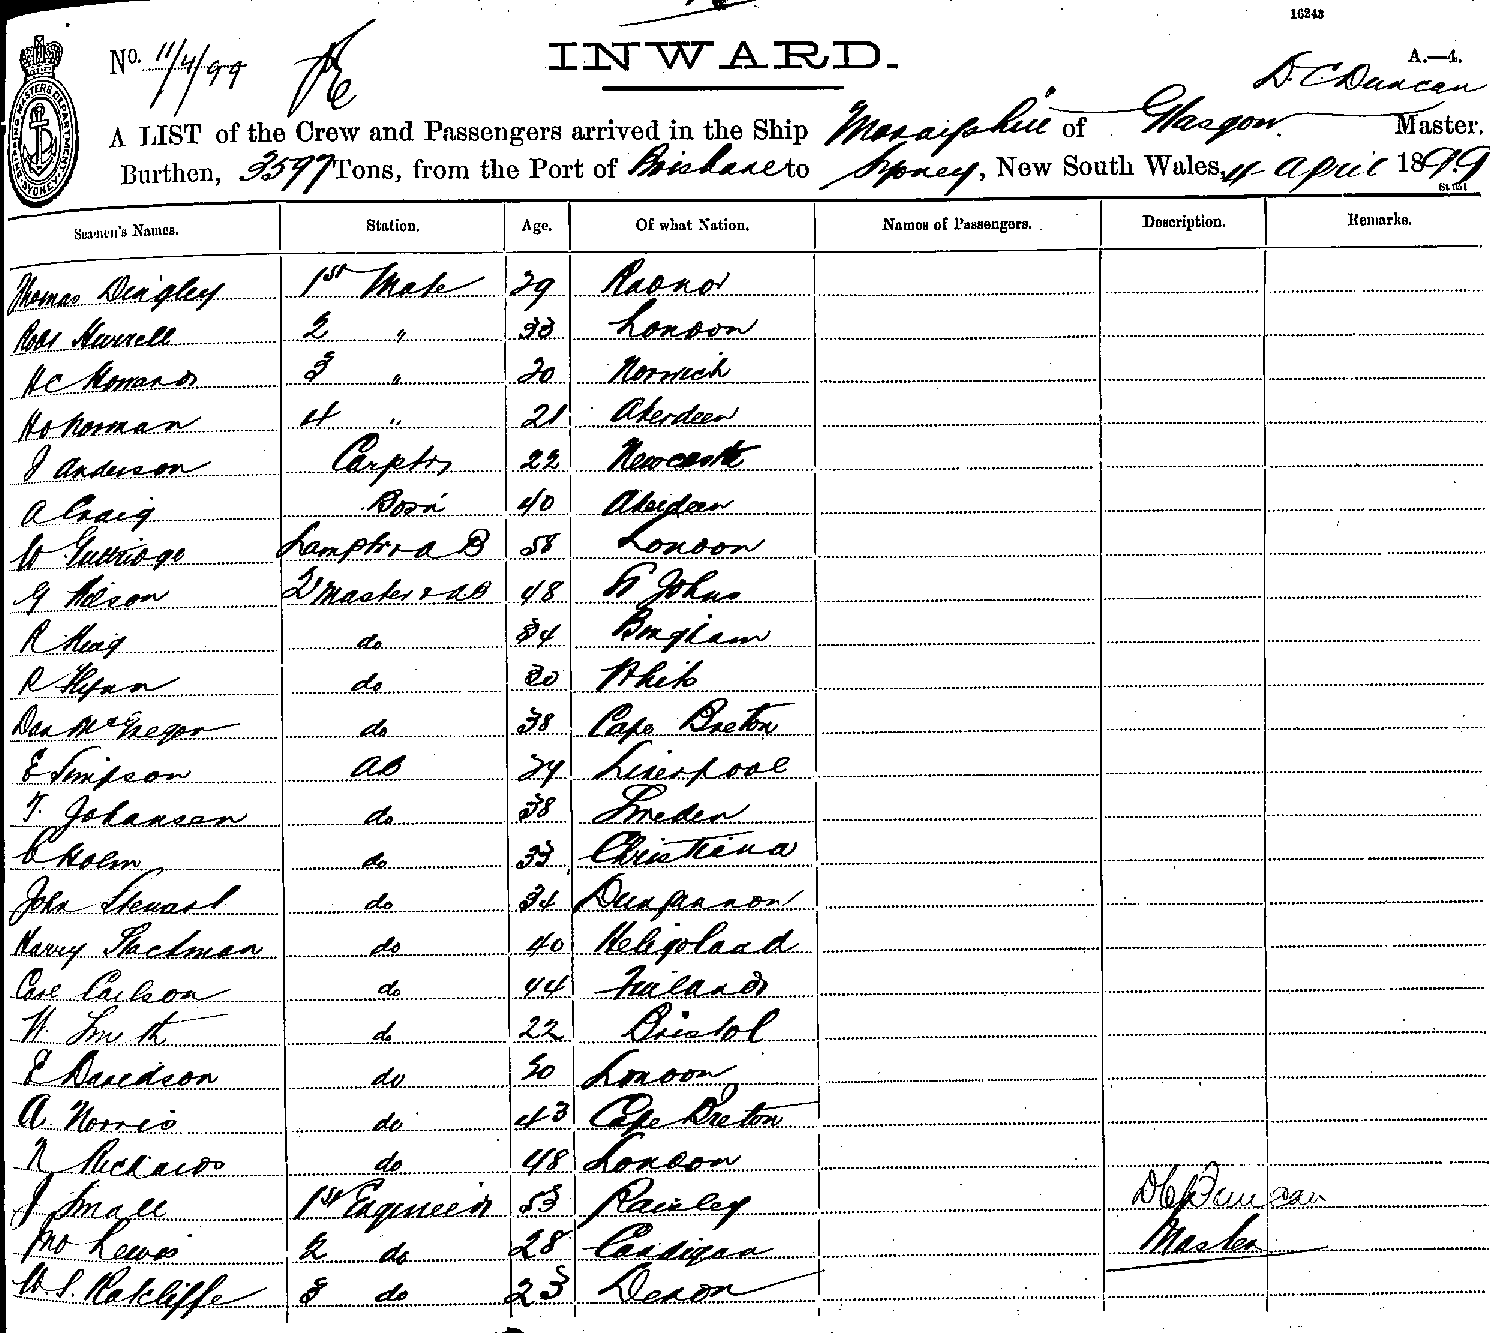 16243
No. 11/4/99
INWARD.
A.—4.
D. C Duncan
A LIST of the Crew and Passengers arrived in the Ship Morayshire of Glasgow. Master.
Burthen, 3597 Tons, from the Port of Brisbane to Sydney, New South Wales, 11 April 1899
Seamen's Names. Station. Age. Of what Nation. Names of Passengers. Description. Remarks.
Thomas Dingley 1st Mate 29 Radnor
Robt Murrell 2 " 33 London
H C Howard 3 " 20 Norwich
H O Norman 4 " 21 Aberdeen
J Anderson Carptr 22 Newcastle
A Craig Bosn 40 Aberdeen
W Guttridge Lamptr & A B 58 London
G Wilson Qr Master & AB 48 St Johns
R King do 34 Bingham
R Flynn do 30
Dan McGregor do 38 Cape Breton
E Simpson AB 24 Liverpool
T. Johansen do 38 Sweden
C Holm do 33 Christiana
John Stewart do 34 Dungannon
Harry Stackman do 40 Heligoland
Carl Carlson do 44 Finland
W. Smith do 22 Bristol
E Davidson do 30 London
A Norris do 43 Cape Breton
R Richards do 48 London
J Small 1st Engineer 53 Paisley
D C Duncan
Jno Lewis 2 do 28 Cardigan
Master
W S. Ratcliffe 3 do 23 Devon